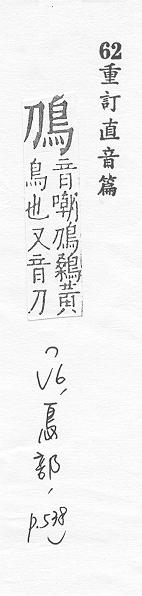 62重訂直音篇
鳭
音嘲鳭鷯黃
鳥也又音刀
(V6, 鳥部, p.538)